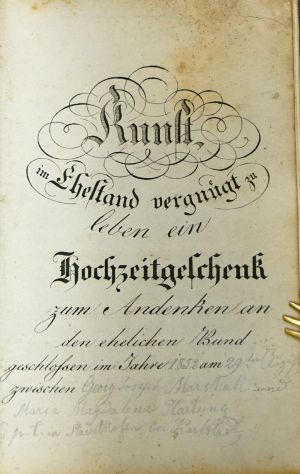 Kunst
im Ehestand vergnügt zu
leben ein
Hochzeitgeschenk
zum Andenken an
den ehelichen Bund
geschlossen im Jahre 1852 am 29
zwischen Georg Joseph Marshall und
Maria Magdalena Hartung
in bei